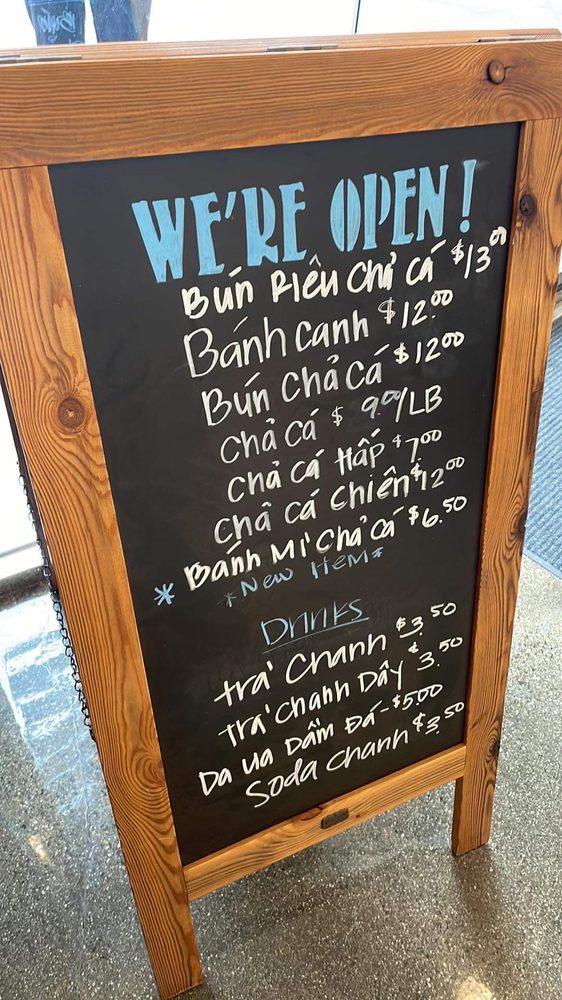 WE'RE OPEN!
Bún Riêu Chả Cá $13.00
Bánh canh $12.00
Bún Chả Cá $12.00
Chả Cá $ 9.00/LB
Chả cá Hấp $7.00
Chả cá chiên $12.00
* Bánh Mì Chả cá $6.50
*New Item*
Drinks
trà Chanh $3.50
trà Chanh Dây $3.50
Da ua Dầm Đá - $5.00
Soda Chanh $3.50